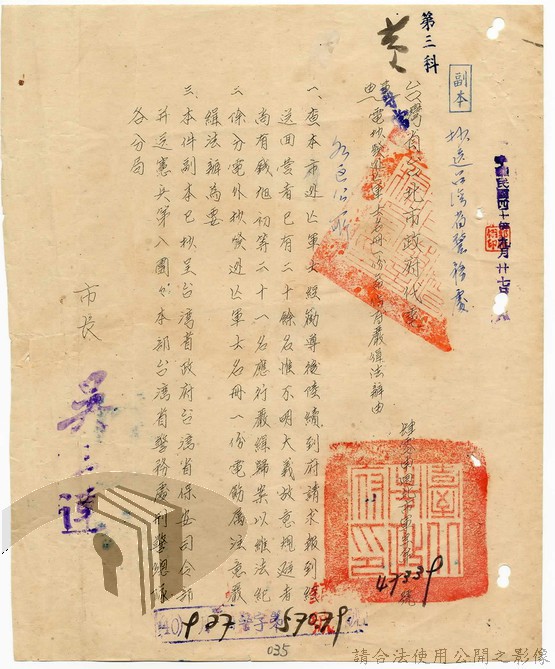 第三科
副本
抄送台湾省警務處
中華民國四十年九月廿七日
台灣省台北市政府代電
事由
電抄發逃亡軍士名冊一份希
嚴緝法辦由
各區公所
一、查本市逃亡軍士經勸導後陸續到府請求報到經
送回營者已有二十餘名惟不明大義故意規避者
尚有錢旭初等二十一名應行嚴緝歸案以維法紀
二、除分電外抄發逃亡軍士名冊一份電飭屬注意嚴
緝法辦為要
三、本件副本已抄呈台湾省政府台湾省保安司令部
並送憲兵第八團本部台湾省警務處刑警總隊
各分局
市長
吳三連
47339
號
(40)
927
警字第
57079
號
035
請合法使用公開之影像